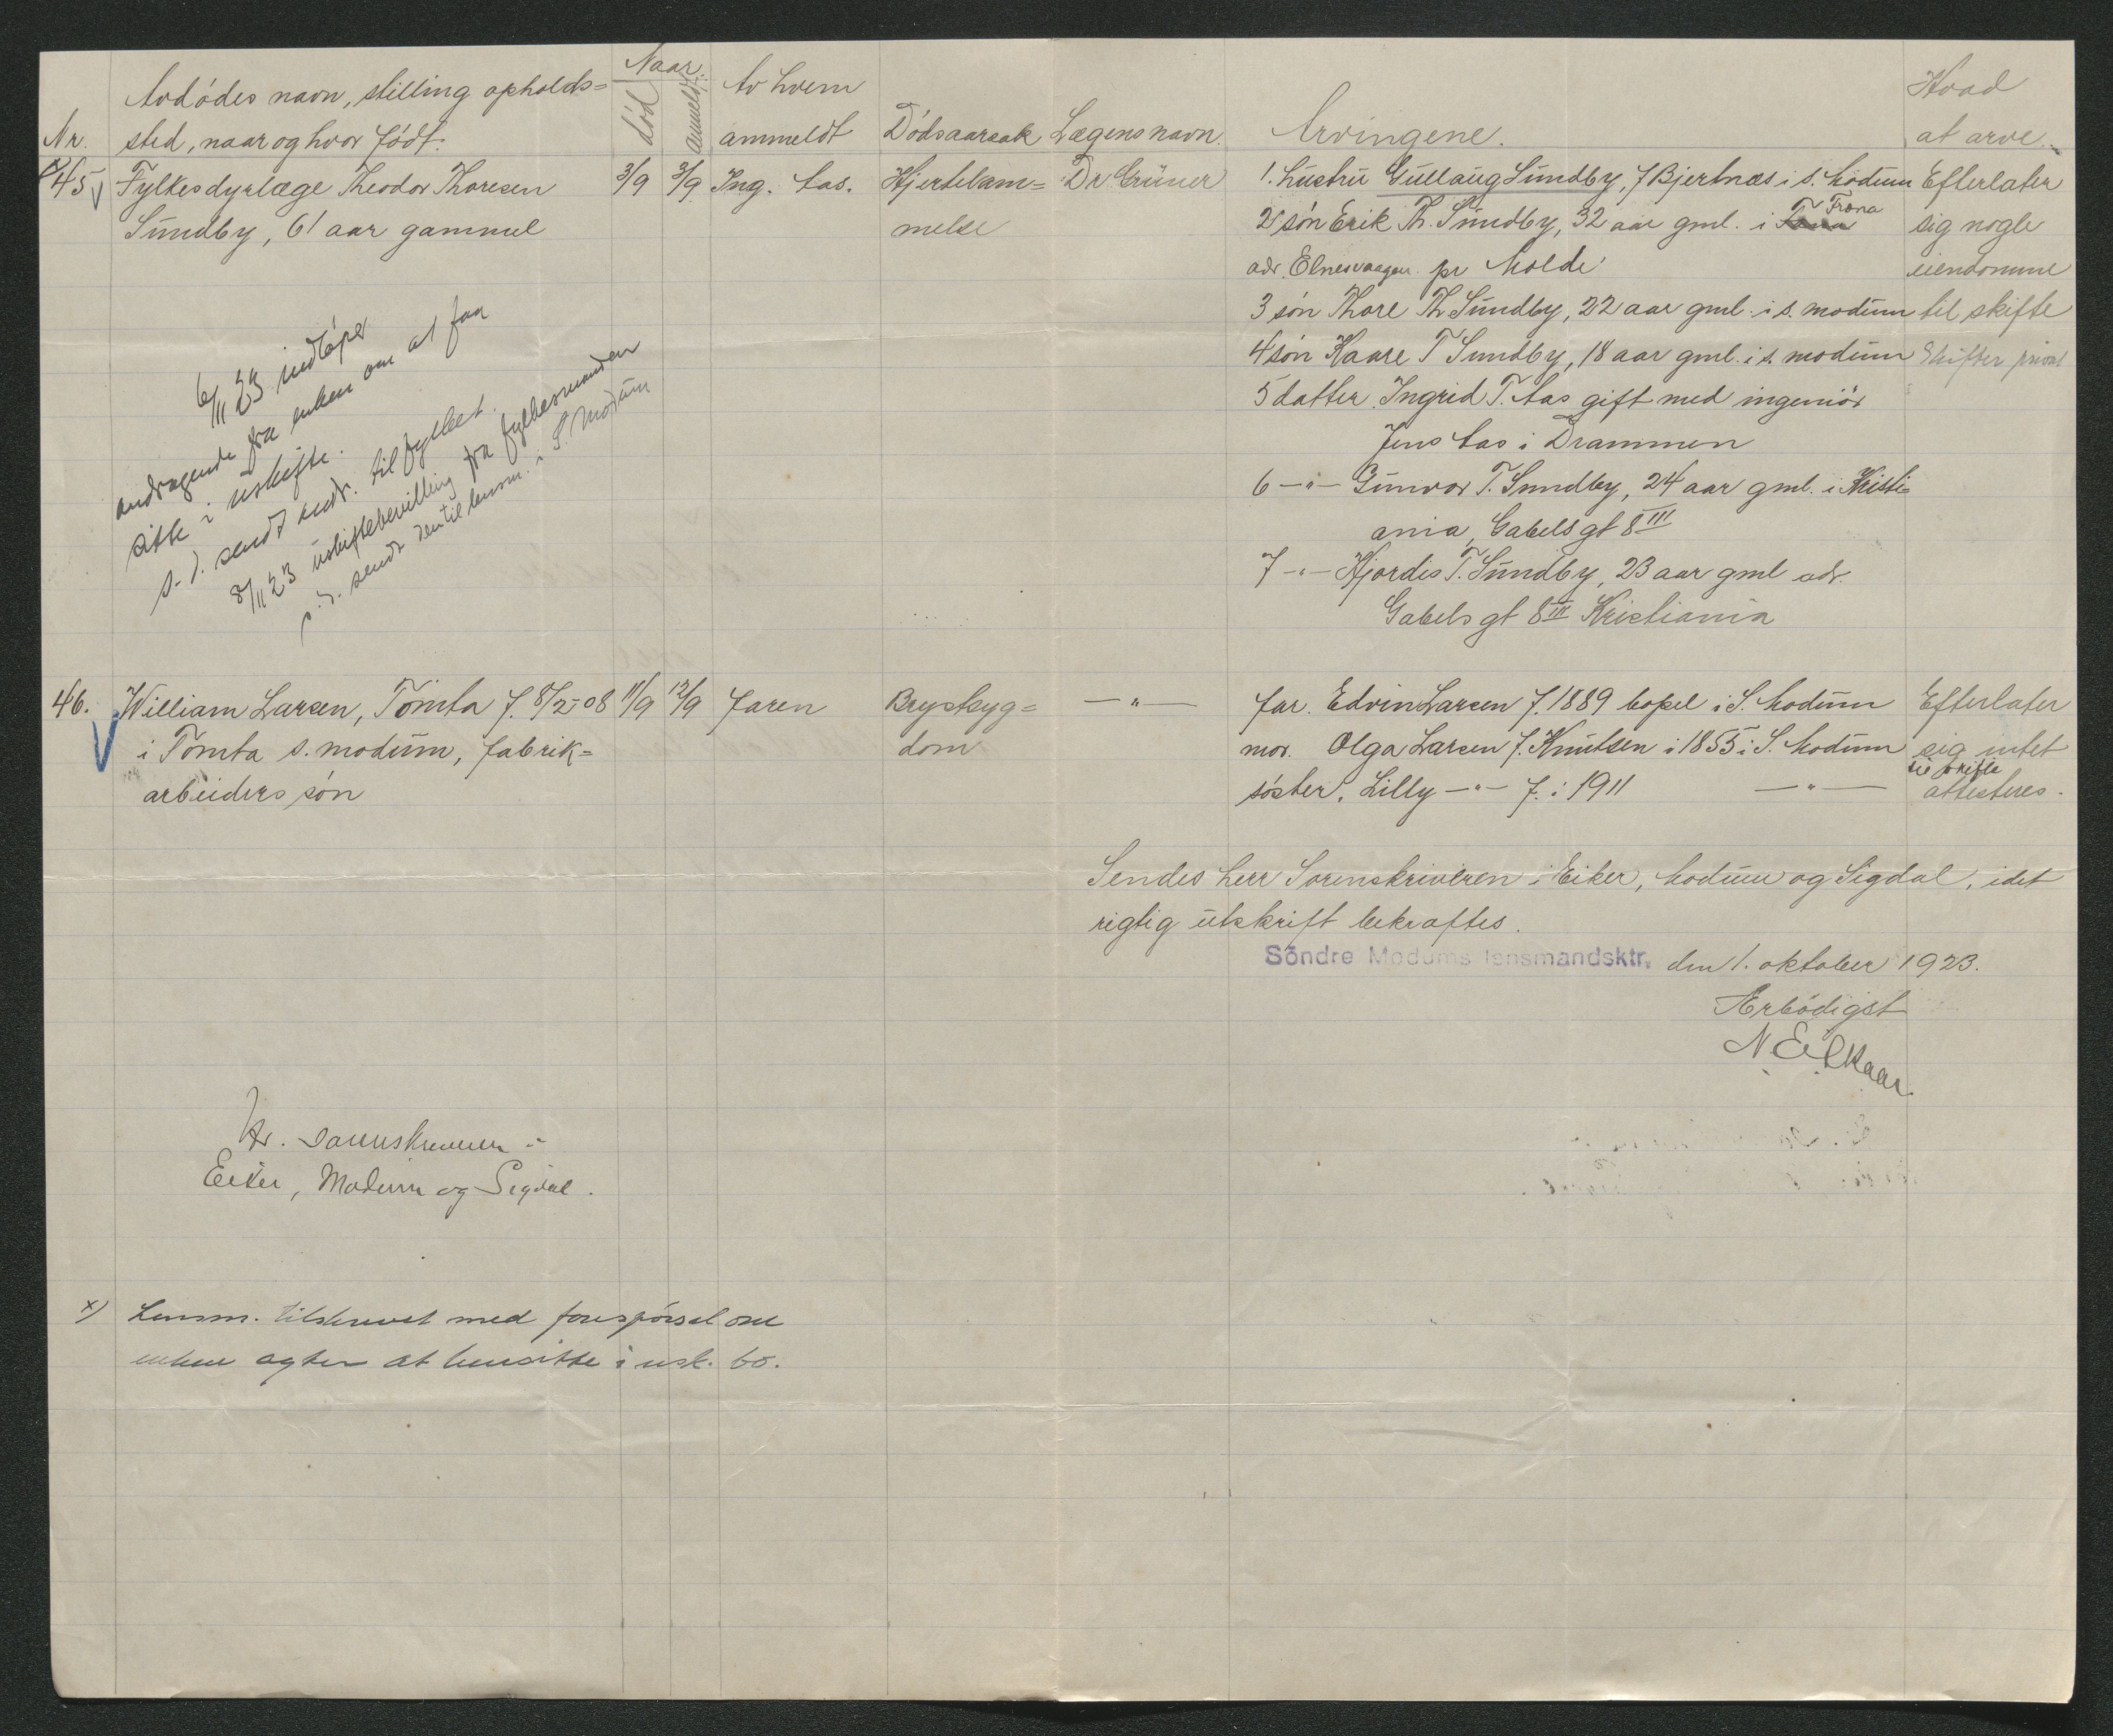 Naar.
Avdødes navn, stilling opholds=
sted, naar og hvor født.
Nr.
død
anmeldt
Av hvem
anmeldt
Dødsaarsak
Lægens navn.
Arvingene.
Hvad
at arve.
45
Fylkesdyrlæge Theodor Thoresen
Sundby, 61 aar gammel
3/9
3/9
Ing. Aas.
Hjertelam=
melse
Dr Grüner
1. hustru Gullaug Sundby, f Bjertnæs i s. Modum
2 søn Erik Th. Sundby, 32 aar gml. i Fræna
adr. Elnesvaagen pr Molde
3 søn Thore Th Sundby, 22 aar gml. i s. modum
4 søn Kaare T Sundby, 18 aar gml. i s. modum
5 datter Ingrid T. Aas gift med ingeniør
Jens Aas i Drammen
6 -"- Gunvor T. Sundby, 24 aar gml. i Kristi=
ania, Gabels gt 8 III
7 -"- Hjordis T. Sundby, 23 aar gml adr.
Gabels gt 8 III Kristiania
Efterlater
sig nogle
eiendomme
til skifte
Skifter privat
6/11 23 indløper
andragende fra enken om at faa
sitte i uskifte.
s. d. sendt andr. til fylket.
8/11 23 uskiftebevilling fra fylkesmanden
s. d. sendt den til lensm. i S. Modum
46.
William Larsen, Tømta f. 8/2-08
i Tømta s. modum, fabrik=
arbeiders søn
11/9
12/9
Faren
Brystsyg=
dom
-"-
far. Edvin Larsen f. 1889 bopel i S. Modum
mor. Olga Larsen f. Knutsen i 1855 i S. Modum
søster. Lilly -"- f. i 1911 -"-
Efterlater
sig intet
til skifte
attesteres.
Sendes herr Sorenskriveren i Eiker, Modum og Sigdal, idet
rigtig utskrift bekræftes.
Söndre Modums lensmandsktr. den 1. oktober 1923.
Ærbødigst
Hr. sorenskriveren i
Eiker, Modum og Sigdal.
x) Lensm. tilskrevet med forespørsel om
enken agter at hensitte i usk. bo.